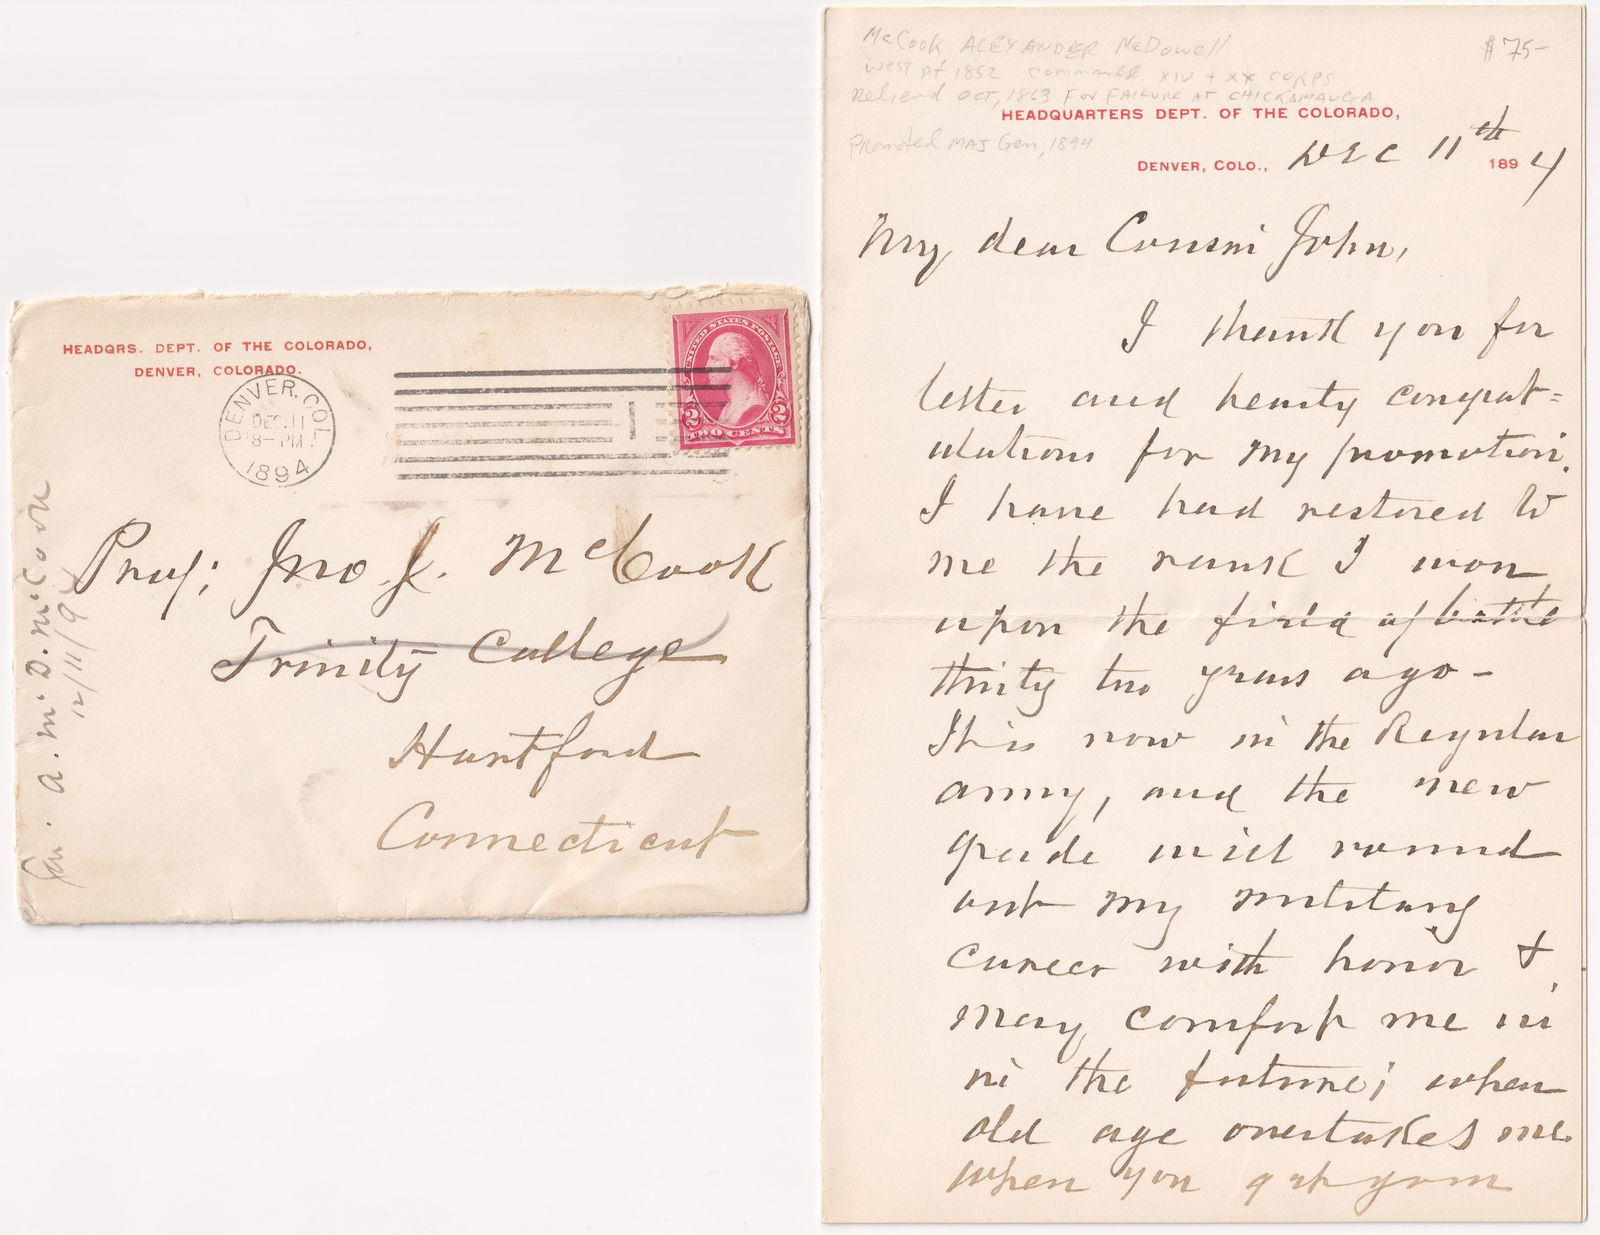 HEADQRS. DEPT. OF THE COLORADO,
DENVER, COLORADO.
DENVER, COL.
DEC. 11
8-PM.
1894
1
UNITED STATES POSTAGE
2 2
TWO CENTS
Prof; Jno J. McCook
Trinity College
Hartford
Connecticut
Gen. A. McD. McCook
12/11/94
McCook ALEXANDER McDowell
$75-
West Pt 1852 commanded XIV + XX CORPS
Relieved OCT, 1863 FOR FAILURE AT CHICKAMAUGA
HEADQUARTERS DEPT. OF THE COLORADO,
Promoted MAJ Gen, 1894
DENVER, COLO., Dec 11th 1894
My dear Cousin John,
I thank you for
letter and hearty congrat=
ulations for my promotion.
I have had restored to
me the rank I won
upon the field of battle
thirty two years ago -
It is now in the Regular
army, and the new
grade will round
out my military
career with honor &
may comfort me in
in the future; when
old age overtakes me.
when you get your